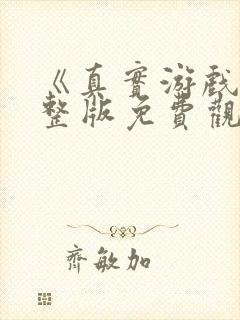 《真實游戲
整版免費觀
齊敏加